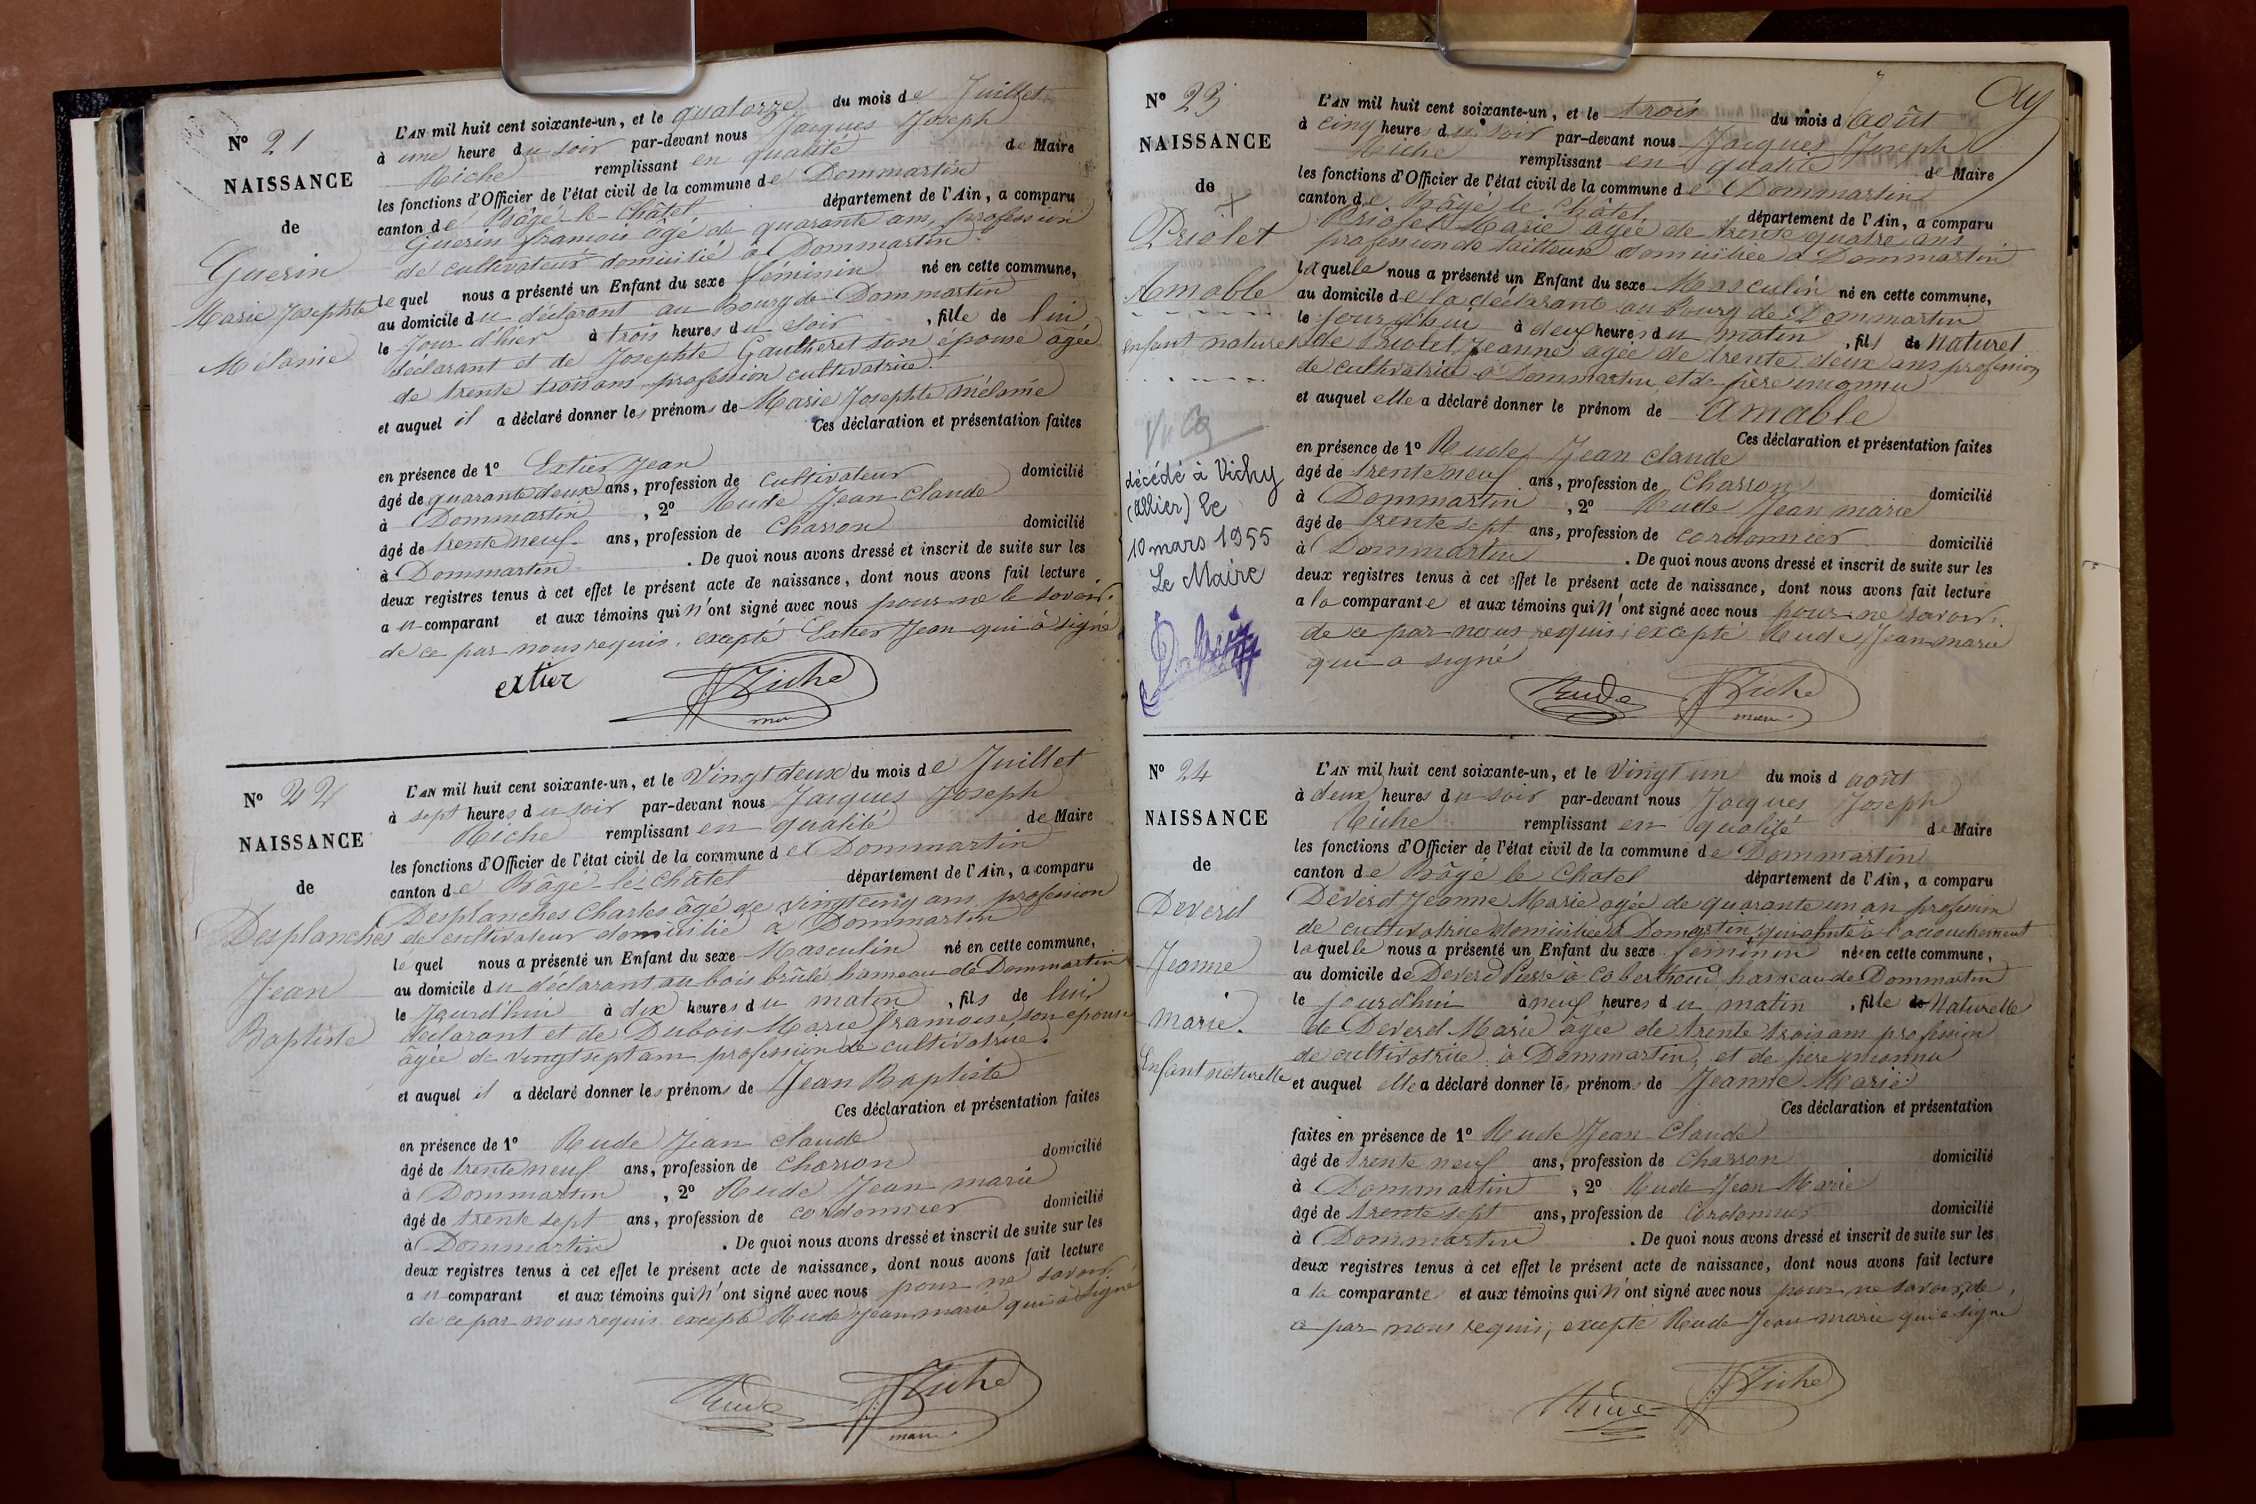 N° 21
NAISSANCE
de
Guerin
Marie Josephte
Mélanie
L'AN mil huit cent soixante-un, et le quatorze du mois de Juillet
à une heure du soir par-devant nous Jacques Joseph
Riche remplissant en qualité de Maire
les fonctions d'Officier de l'état civil de la commune de Dommartin
canton de Bâgé-le-Châtel département de l'Ain, a comparu
Guerin françois âgé de quarante ans, profession
de cultivateur domicilié à Dommartin
lequel nous a présenté un Enfant du sexe féminin né en cette commune,
au domicile du déclarant au Bourg de Dommartin
le jour d'hier à trois heures du soir, fille de lui
déclarant et de Josephte Gautheret son épouse âgée
de trente trois ans profession cultivatrice.
et auquel il a déclaré donner les prénoms de Marie Josephte Mélanie
Ces déclaration et présentation faites
en présence de 1° Extier Jean
âgé de quarante deux ans, profession de cultivateur domicilié
à Dommartin, 2° Rude Jean claude
âgé de trente neuf ans, profession de Charron domicilié
à Dommartin. De quoi nous avons dressé et inscrit de suite sur les
deux registres tenus à cet effet le présent acte de naissance, dont nous avons fait lecture
au comparant et aux témoins qui n'ont signé avec nous pour ne le savoir.
de ce par nous requis, excepté Extier Jean qui à signé
extier Riche
maire
N° 22
NAISSANCE
de
Desplanches
Jean
Baptiste
L'AN mil huit cent soixante-un, et le Vingt deux du mois de Juillet
à sept heures du soir par-devant nous Jacques Joseph
Riche remplissant en qualité de Maire
les fonctions d'Officier de l'état civil de la commune de Dommartin
canton de Bâgé-le-Châtel département de l'Ain, a comparu
Desplanches Charles âgé de vingt cinq ans, profession
de cultivateur domicilié à Dommartin
lequel nous a présenté un Enfant du sexe Masculin né en cette commune,
au domicile du déclarant au bois brûlé, hameau de Dommartin
le Jourd'hui à dix heures du matin, fils de lui
déclarant et de Dubois Marie françoise, son épouse
âgée de vingt sept ans profession de cultivatrice.
et auquel il a déclaré donner les prénoms de Jean Baptiste
Ces déclaration et présentation faites
en présence de 1° Rude Jean claude
âgé de trente neuf ans, profession de Charron domicilié
à Dommartin, 2° Rude Jean marie
âgé de trente sept ans, profession de cordonnier domicilié
à Dommartin. De quoi nous avons dressé et inscrit de suite sur les
deux registres tenus à cet effet le présent acte de naissance, dont nous avons fait lecture
au comparant et aux témoins qui n'ont signé avec nous pour ne savoir.
de ce par nous requis excepté Rude Jean marie qui à signé
Rude Riche
maire
N° 23
NAISSANCE
de
Priolet
Amable
enfant naturel
décédé à Vichy
(Allier) le
10 mars 1955
Le Maire
L'AN mil huit cent soixante-un, et le trois du mois d'août
à cinq heures du soir par-devant nous Jacques Joseph
Riche remplissant en qualité de Maire
les fonctions d'Officier de l'état civil de la commune de Dommartin
canton de Bâgé le Châtel, département de l'Ain, a comparu
Priolet Marie âgée de trente quatre ans
profession de tailleuse domiciliée à Dommartin
laquelle nous a présenté un Enfant du sexe Masculin né en cette commune,
au domicile de la déclarante au bourg de Dommartin
le jourd'hui à deux heures du matin, fils de Naturel
de Priolet Jeanne âgée de trente deux ans profession
de cultivatrice à Dommartin et de père inconnu
et auquel elle a déclaré donner le prénom de Amable
Ces déclaration et présentation faites
en présence de 1° Rude Jean claude
âgé de trente neuf ans, profession de Charron domicilié
à Dommartin, 2° Rude Jean marie
âgé de trente sept ans, profession de cordonnier domicilié
à Dommartin. De quoi nous avons dressé et inscrit de suite sur les
deux registres tenus à cet effet le présent acte de naissance, dont nous avons fait lecture
a la comparante et aux témoins qui n'ont signé avec nous pour ne savoir.
de ce par nous requis; excepté Rude Jean marie
qui a signé
Rude Riche
maire
N° 24
NAISSANCE
de
Deverd
Jeanne
marie.
Enfant naturelle
L'AN mil huit cent soixante-un, et le Vingt un du mois d'août
à deux heures du soir par-devant nous Jacques Joseph
Riche remplissant en qualité de Maire
les fonctions d'Officier de l'état civil de la commune de Dommartin
canton de Bâgé le Chatel département de l'Ain, a comparu
Deverd Jeanne Marie âgée de quarante un an profession
de cultivatrice domiciliée à Domartin, qui a assisté à l'accouchement
laquelle nous a présenté un Enfant du sexe féminin né en cette commune,
au domicile de Deverd Pierre à Coberthoud, hameau de Dommartin
le jourd'hui à neuf heures du matin, fille de Naturelle
de Deverd Marie âgée de trente trois ans profession
de cultivatrice à Dommartin, et de père inconnu
et auquel elle a déclaré donner les prénoms de Jeanne Marie
Ces déclaration et présentation
faites en présence de 1° Rude Jean-Claude
âgé de trente neuf ans, profession de Charron domicilié
à Dommartin, 2° Rude Jean Marie
âgé de trente sept ans, profession de Cordonnier domicilié
à Dommartin. De quoi nous avons dressé et inscrit de suite sur les
deux registres tenus à cet effet le présent acte de naissance, dont nous avons fait lecture
a la comparante et aux témoins qui n'ont signé avec nous pour ne savoir, de
ce par nous requis, excepté Rude Jean marie qui a signé
Rude Riche